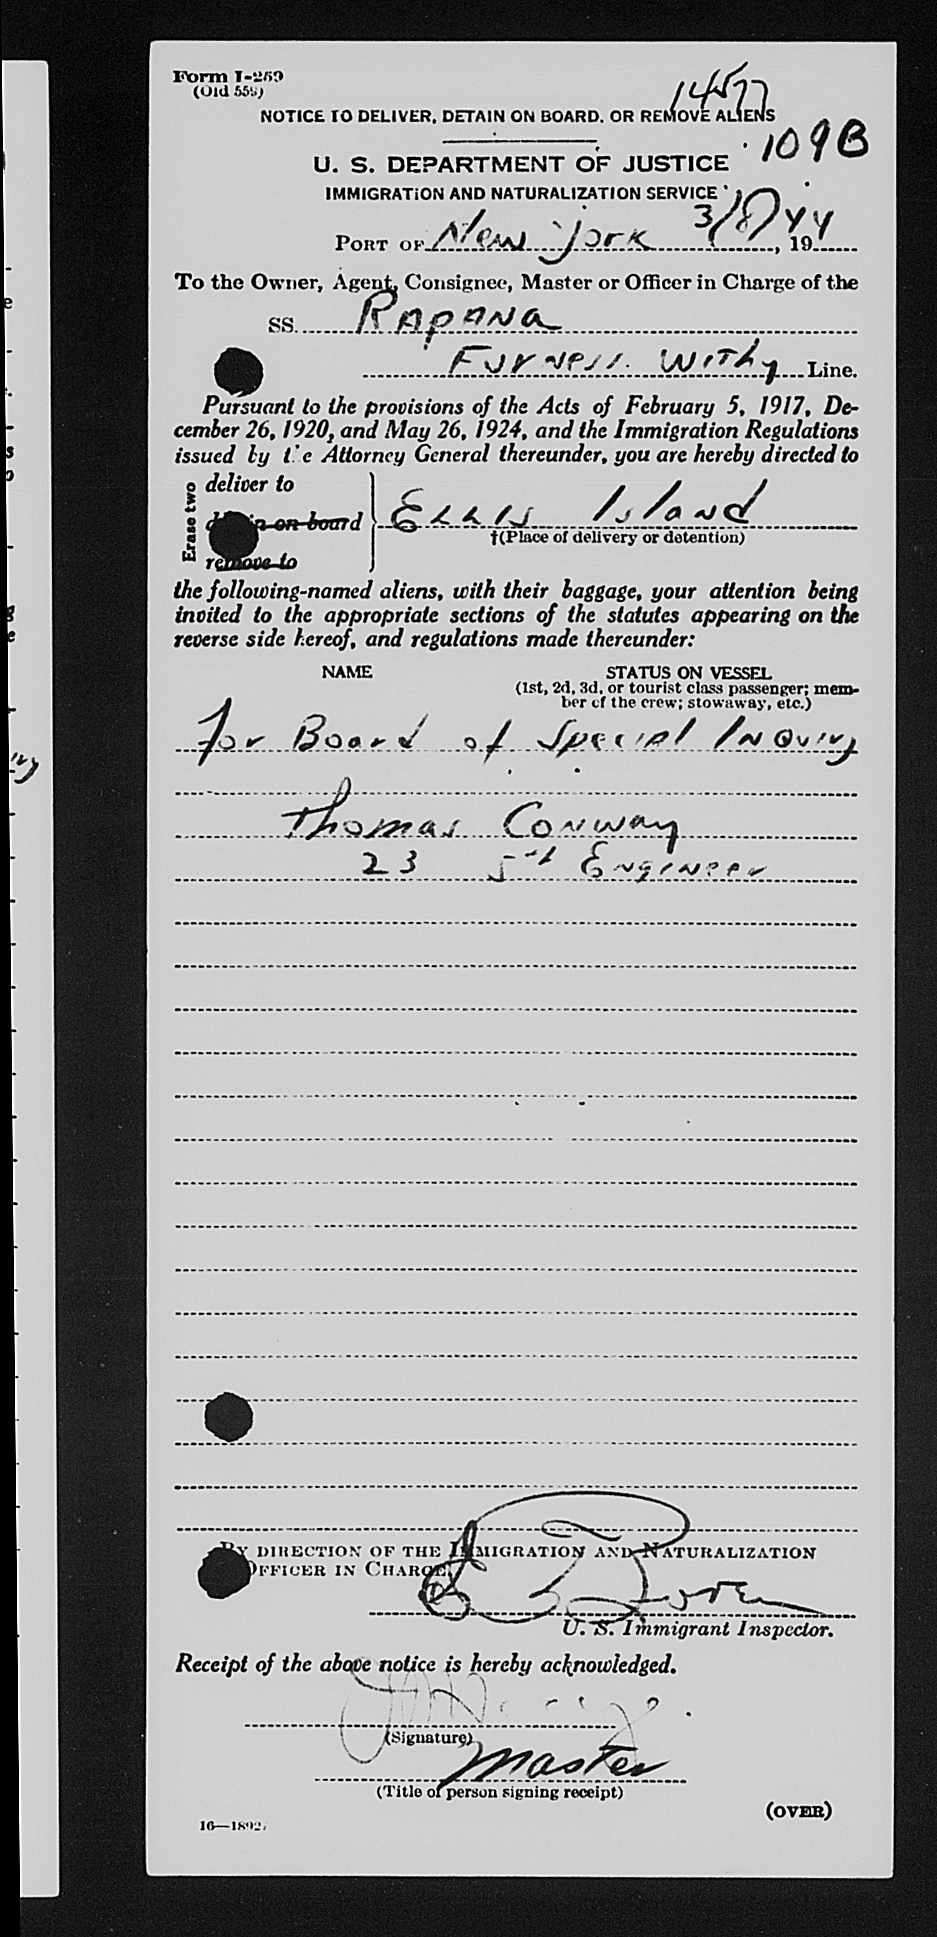 Form I-259
(Old 559)
14577
NOTICE TO DELIVER, DETAIN ON BOARD, OR REMOVE ALIENS
109B
U. S. DEPARTMENT OF JUSTICE
IMMIGRATION AND NATURALIZATION SERVICE
PORT OF New York 3/8/44, 19
To the Owner, Agent, Consignee, Master or Officer in Charge of the
SS. Rapana
Furness Withy Line.
Pursuant to the provisions of the Acts of February 5, 1917, De-
cember 26, 1920, and May 26, 1924, and the Immigration Regulations
issued by the Attorney General thereunder, you are hereby directed to
Erase two
deliver to
detain on board
remove to
Ellis Island
†(Place of delivery or detention)
the following-named aliens, with their baggage, your attention being
invited to the appropriate sections of the statutes appearing on the
reverse side hereof, and regulations made thereunder:
NAME
STATUS ON VESSEL
(1st, 2d, 3d, or tourist class passenger; mem-
ber of the crew; stowaway, etc.)
For Board of Special Inquiry
Thomas Conway
23 5th Engineer
BY DIRECTION OF THE IMMIGRATION AND NATURALIZATION
OFFICER IN CHARGE
U. S. Immigrant Inspector.
Receipt of the above notice is hereby acknowledged.
(Signature)
Master
(Title of person signing receipt)
(OVER)
16—18927